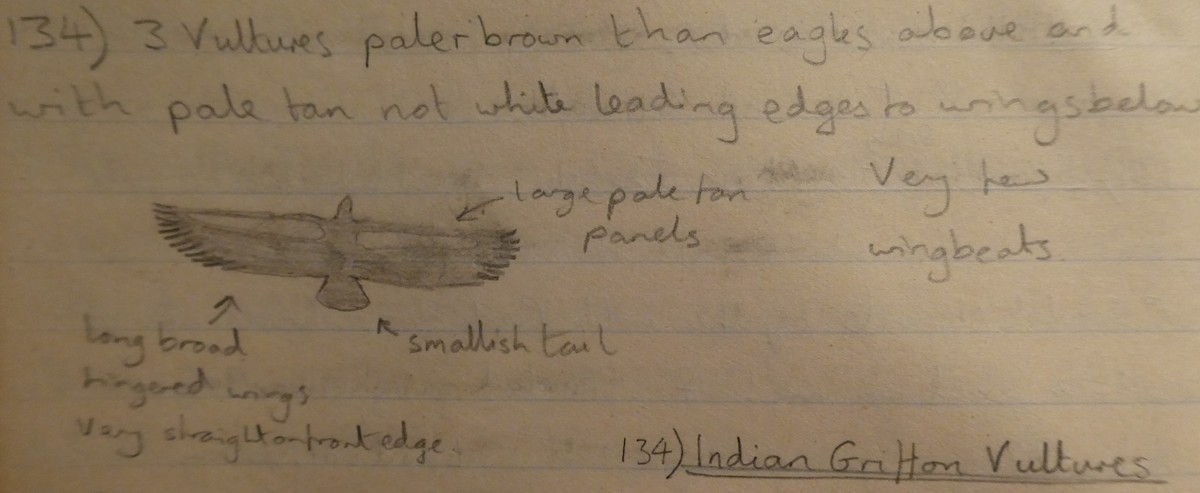 134) 3 Vultures paler brown than eagles above and
with pale tan not white leading edges to wings below
large pale tan
panels
Very few
wingbeats.
smallish tail
long broad
fingered wings
Very straight on front edge.
134) Indian Griffon Vultures